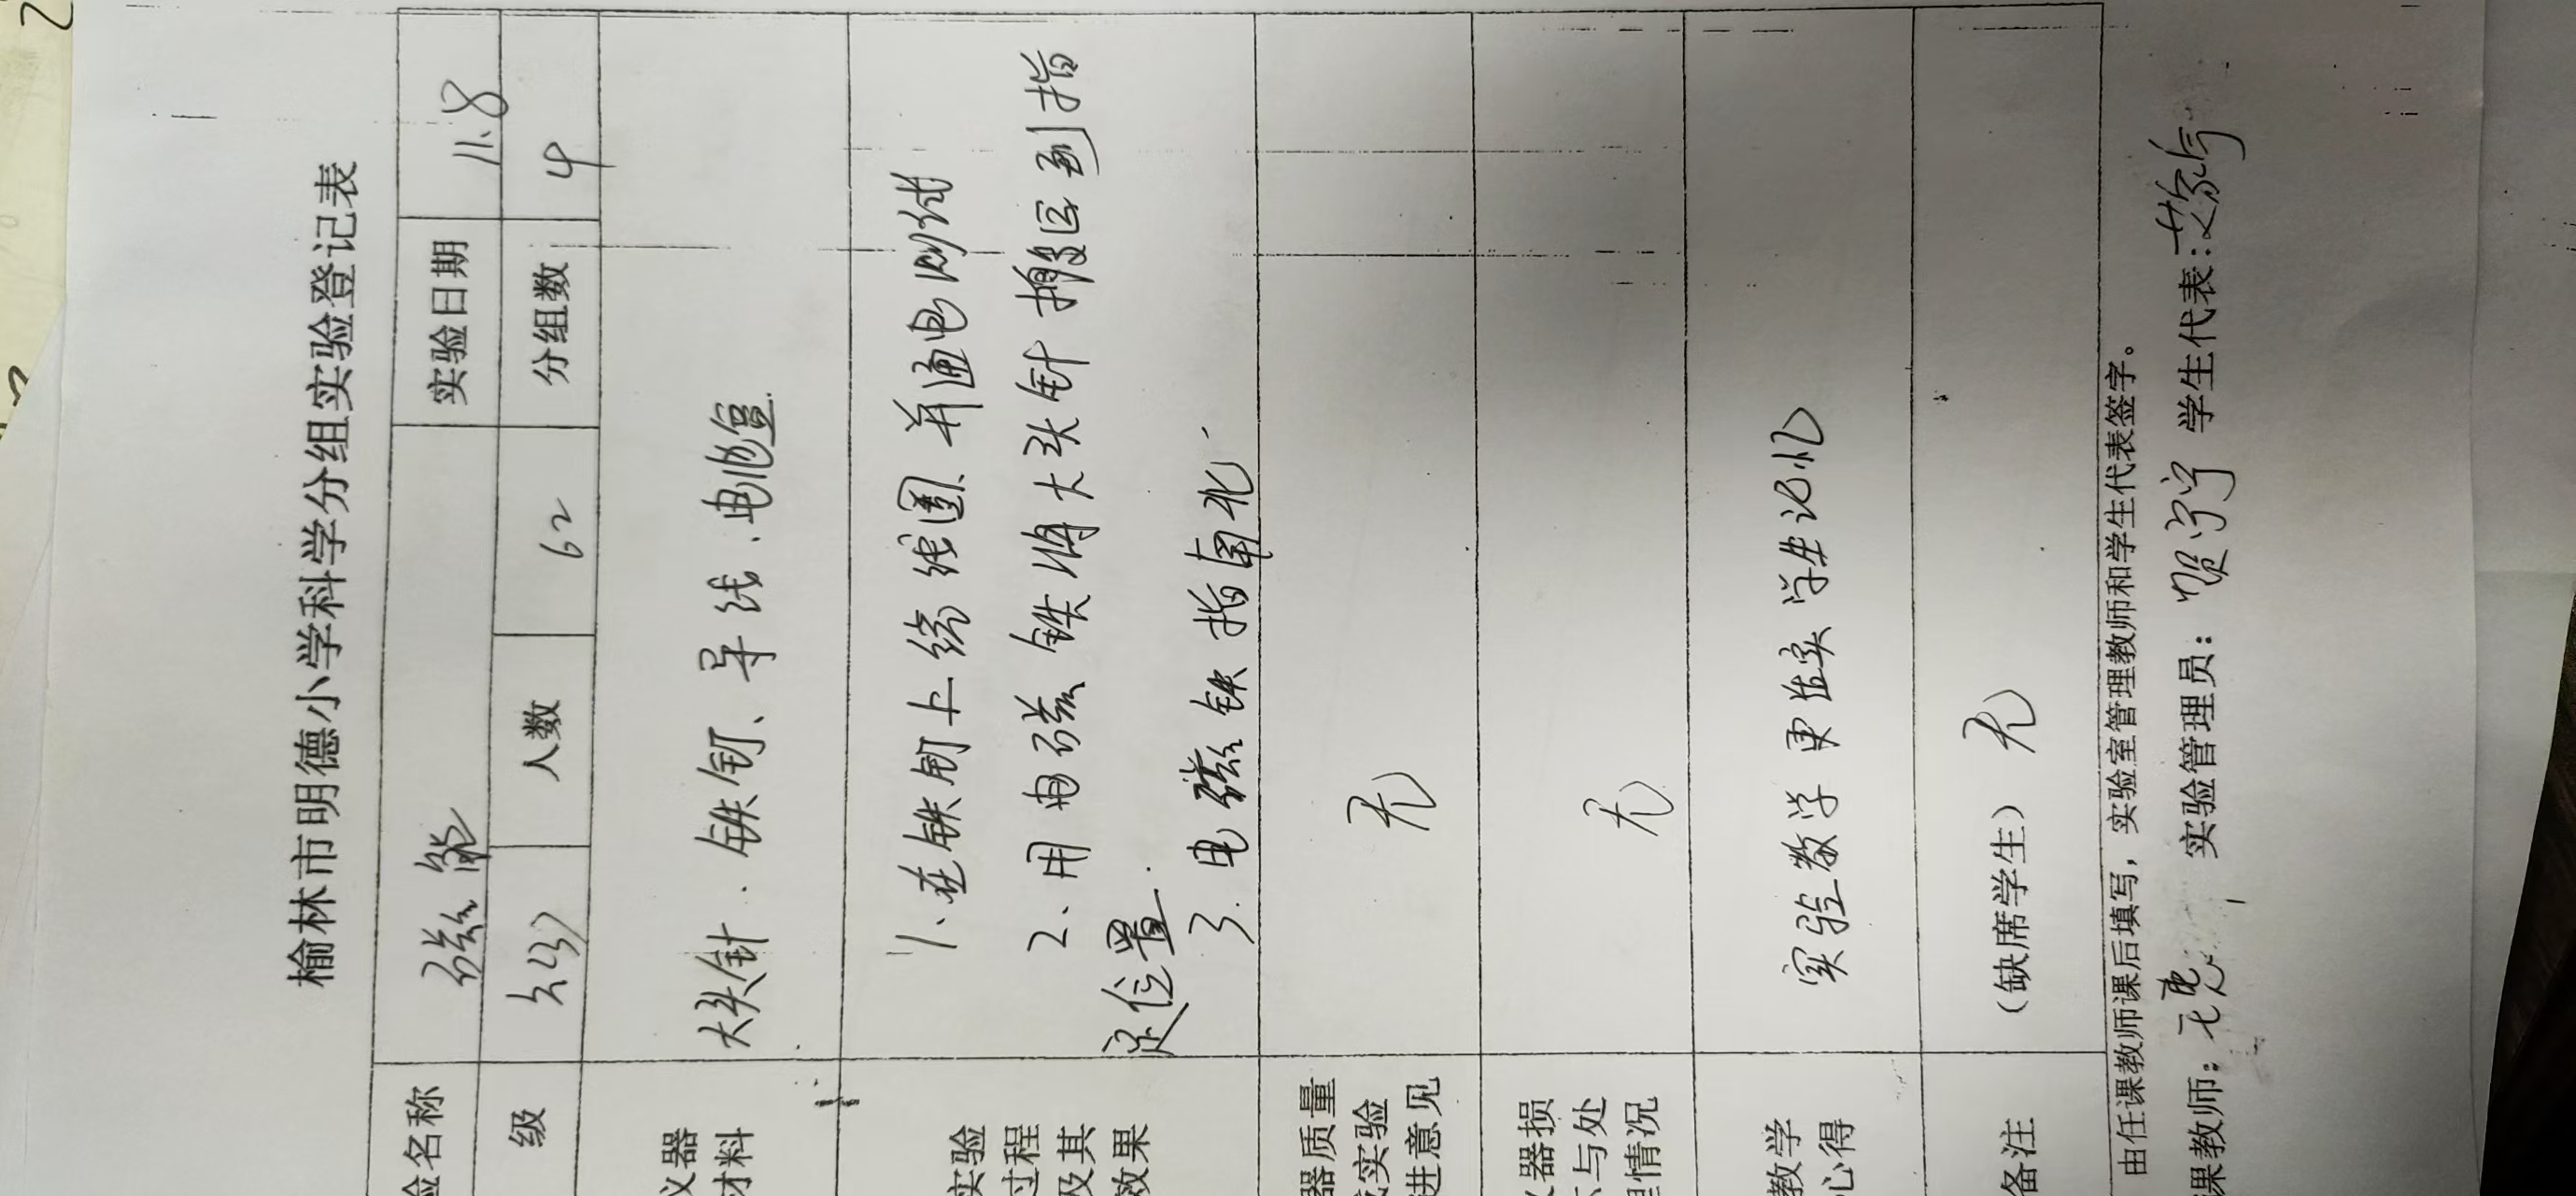 榆林市明德小学科学分组实验登记表
验名称 磁能 实验日期 11.8
级 六(3) 人数 62 分组数 4
仪器
材料
大头针、铁钉、导线、电池盒
实验
过程
及其
效果
1、在铁钉上绕线圈、并通电
2、用电磁铁将大头针搬运到指
定位置.
3.电磁铁指南北.
器质量
或实验
进意见
无
仪器损
坏与处
理情况
无
教学
心得
实验教学更能 学生记忆
备注 (缺席学生) 无
由任课教师课后填写,实验室管理教师和学生代表签字。
课教师: 实验管理员:贺宁宁 学生代表: